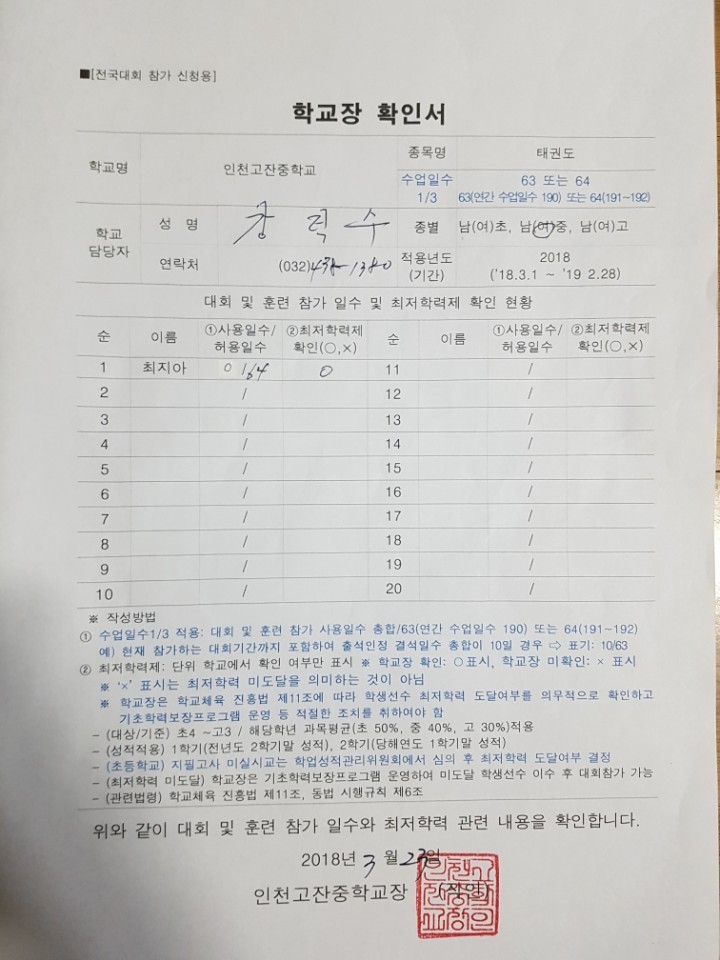 ■[전국대회 참가 신청용]
학교장 확인서
학교명 인천고잔중학교 종목명 태권도
수업일수 1/3 63 또는 64
63(연간 수업일수 190) 또는 64(191~192)
학교 담당자 성 명 강 덕 수 종별 남(여)초, 남(여)중, 남(여)고
연락처 (032)438-1380 적용년도 (기간) 2018
('18.3.1 ~ '19 2.28)
대회 및 훈련 참가 일수 및 최저학력제 확인 현황
순 이름 ①사용일수/허용일수 ②최저학력제 확인(○,×) 순 이름 ①사용일수/허용일수 ②최저학력제 확인(○,×)
1 최지아 0/64 0 11 /
2 / 12 /
3 / 13 /
4 / 14 /
5 / 15 /
6 / 16 /
7 / 17 /
8 / 18 /
9 / 19 /
10 / 20 /
※ 작성방법
① 수업일수1/3 적용: 대회 및 훈련 참가 사용일수 총합/63(연간 수업일수 190) 또는 64(191~192)
예) 현재 참가하는 대회기간까지 포함하여 출석인정 결석일수 총합이 10일 경우 ⇨ 표기: 10/63
② 최저학력제: 단위 학교에서 확인 여부만 표시 ※ 학교장 확인: ○표시, 학교장 미확인: × 표시
※ '×' 표시는 최저학력 미도달을 의미하는 것이 아님
※ 학교장은 학교체육 진흥법 제11조에 따라 학생선수 최저학력 도달여부를 의무적으로 확인하고
기초학력보장프로그램 운영 등 적절한 조치를 취하여야 함
- (대상/기준) 초4 ~고3 / 해당학년 과목평균(초 50%, 중 40%, 고 30%)적용
- (성적적용) 1학기(전년도 2학기말 성적), 2학기(당해연도 1학기말 성적)
- (초등학교) 지필고사 미실시교는 학업성적관리위원회에서 심의 후 최저학력 도달여부 결정
- (최저학력 미도달) 학교장은 기초학력보장프로그램 운영하여 미도달 학생선수 이수 후 대회참가 가능
- (관련법령) 학교체육 진흥법 제11조, 동법 시행규칙 제6조
위와 같이 대회 및 훈련 참가 일수와 최저학력 관련 내용을 확인합니다.
2018년 3 월 23일
인천고잔중학교장 (직인)